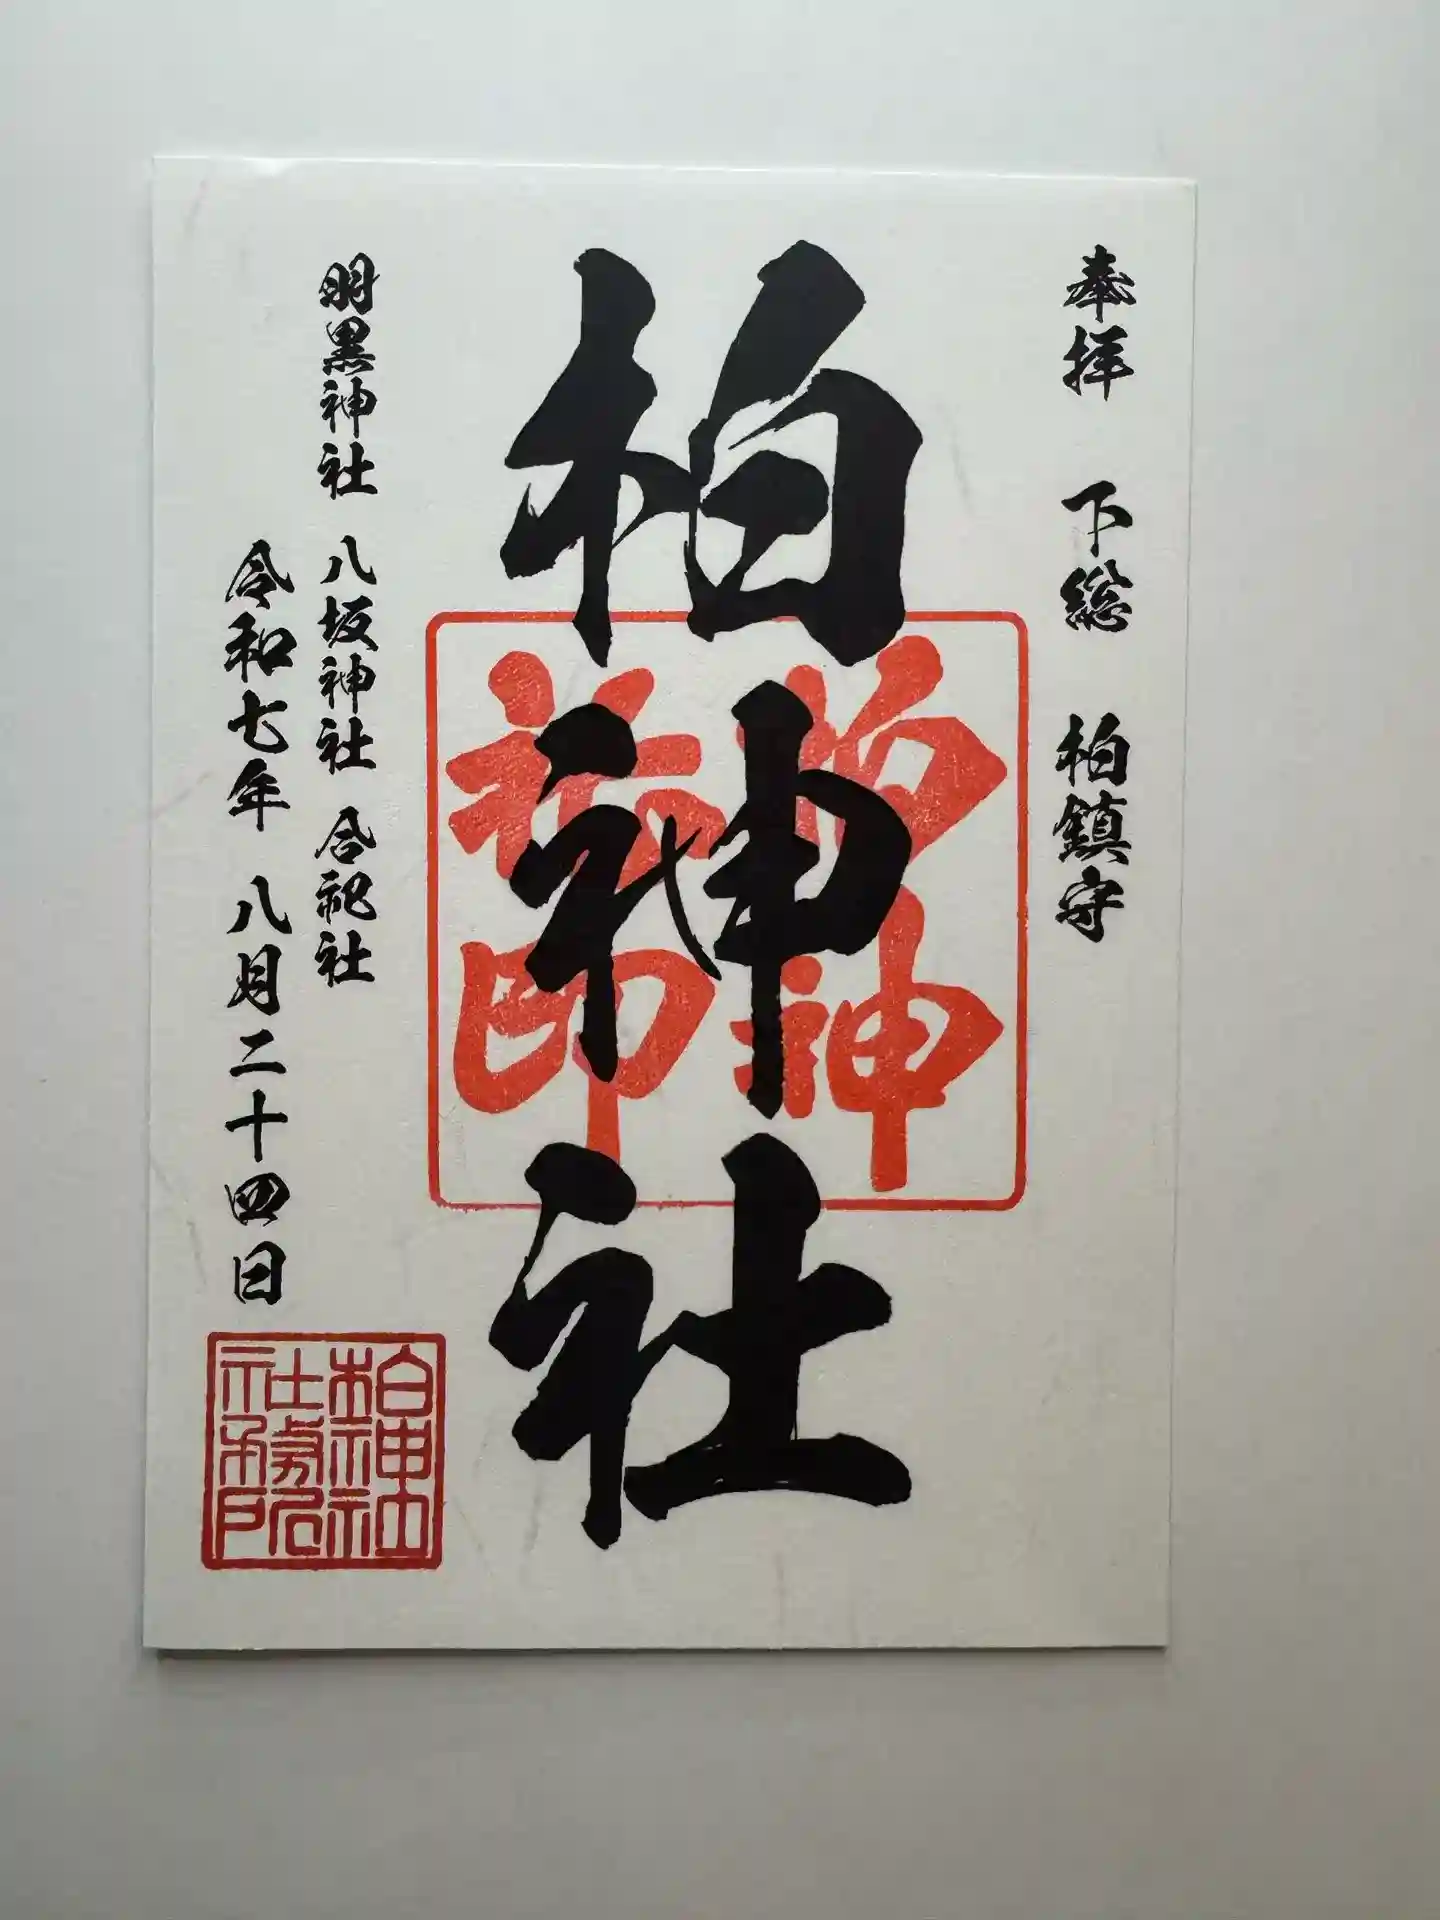 奉拝 下総 柏鎮守
柏神社
柏神
社印
羽黒神社 八坂神社 合祀社
令和七年 八月二十四日
柏神社
社務所